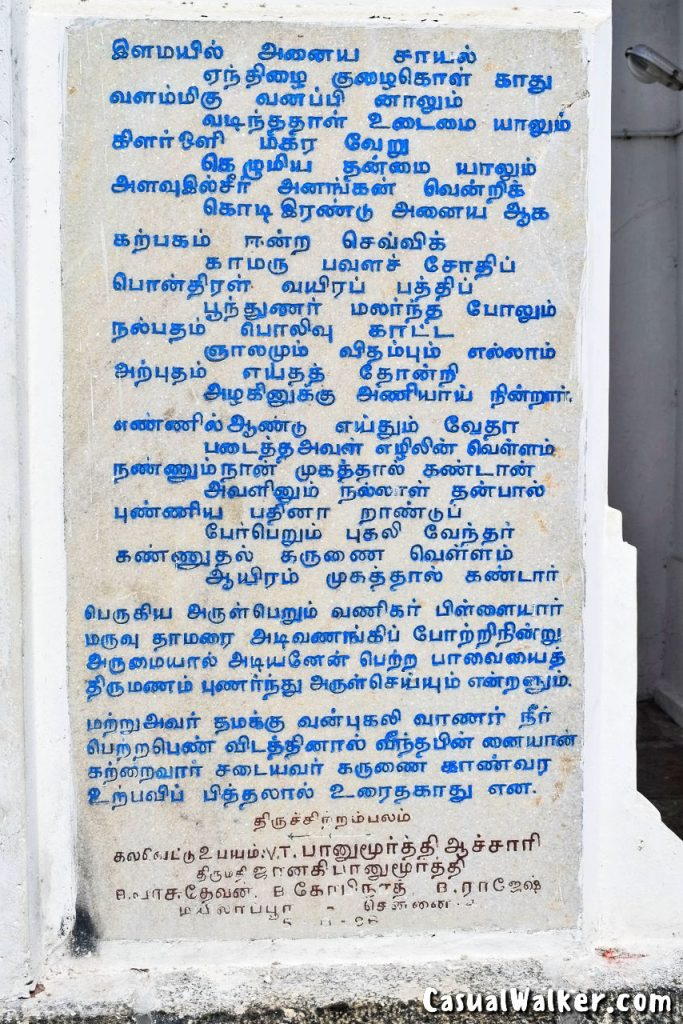 இளமயில் அனைய சாயல்
ஏந்திழை குழைகொள் காது
வளம்மிகு வனப்பி னாலும்
வடிந்ததாள் உடைமை யாலும்
கிளர்ஒளி மிகர வேறு
கெழுமிய தன்மை யாலும்
அளவுஇல்சீர் அனங்கன் வென்றிக்
கொடிஇரண்டு அனைய ஆக
கற்பகம் ஈன்ற செவ்விக்
காமரு பவளச் சோதிப்
பொன்திரள் வயிரப் பத்திப்
பூந்துணர் மலர்ந்த போலும்
நல்பதம் பொலிவு காட்ட
ஞாலமும் விதம்பும் எல்லாம்
அற்புதம் எய்தத் தோன்றி
அழகினுக்கு அணியாய் நின்றார்.
எண்ணில்ஆண்டு எய்தும் வேதா
படைத்தஅவள் எழிலின் வெள்ளம்
நண்ணும்நான் முகத்தால் கண்டான்
அவளினும் நல்லாள் தன்பால்
புண்ணிய பதினா றாண்டுப்
பேர்பெறும் புகலி வேந்தர்
கண்ணுதல் கருணை வெள்ளம்
ஆயிரம் முகத்தால் கண்டார்
பெருகிய அருள்பெறும் வணிகர் பிள்ளையார்
மருவு தாமரை அடிவணங்கிப் போற்றிநின்று
அருமையால் அடியனேன் பெற்ற பாவையைத்
திருமணம் புணர்ந்து அருள்செய்யும் என்றலும்.
மற்றுஅவர் தமக்கு வன்புகலி வாணர் நீர்
பெற்றபெண் விடத்தினால் வீந்தபின் னையான்
கற்றைவார் சடையவர் கருணை காண்வர
உற்பவிப் பித்தலால் உரைதகாது என.
திருச்சிற்றம்பலம்
கல்வெட்டு உபயம்:V.T. பானுமூர்த்தி ஆச்சாரி
திருமதி ஜானகிபானுமூர்த்தி
B.வாசுதேவன். B கோபிநாத் B.ராஜேஷ்
மயிலாப்பூர் - சென்னை.
CasualWalker.com